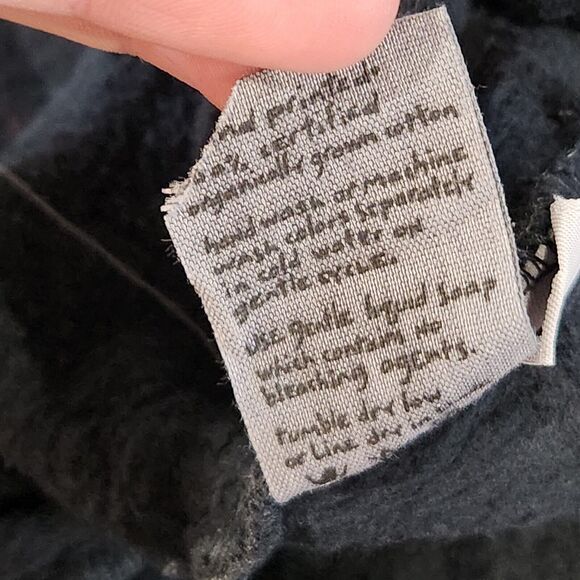 printed
certified
organically grown cotton
hand wash or machine
wash colors separately
in cold water on
gentle cycle.
use gentle liquid soap
which contains no
bleaching agents.
tumble dry low
or line dry